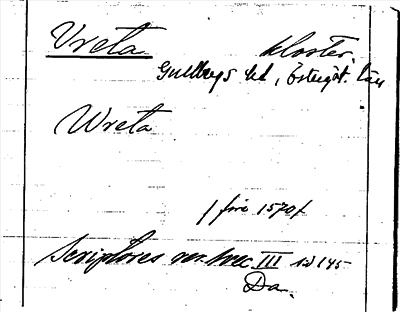 Vreta kloster.
Gullbergs hd, Östergöt. län
Wreta
/ före 1570 /
Scriptores rer. svec III 1:145
Da.